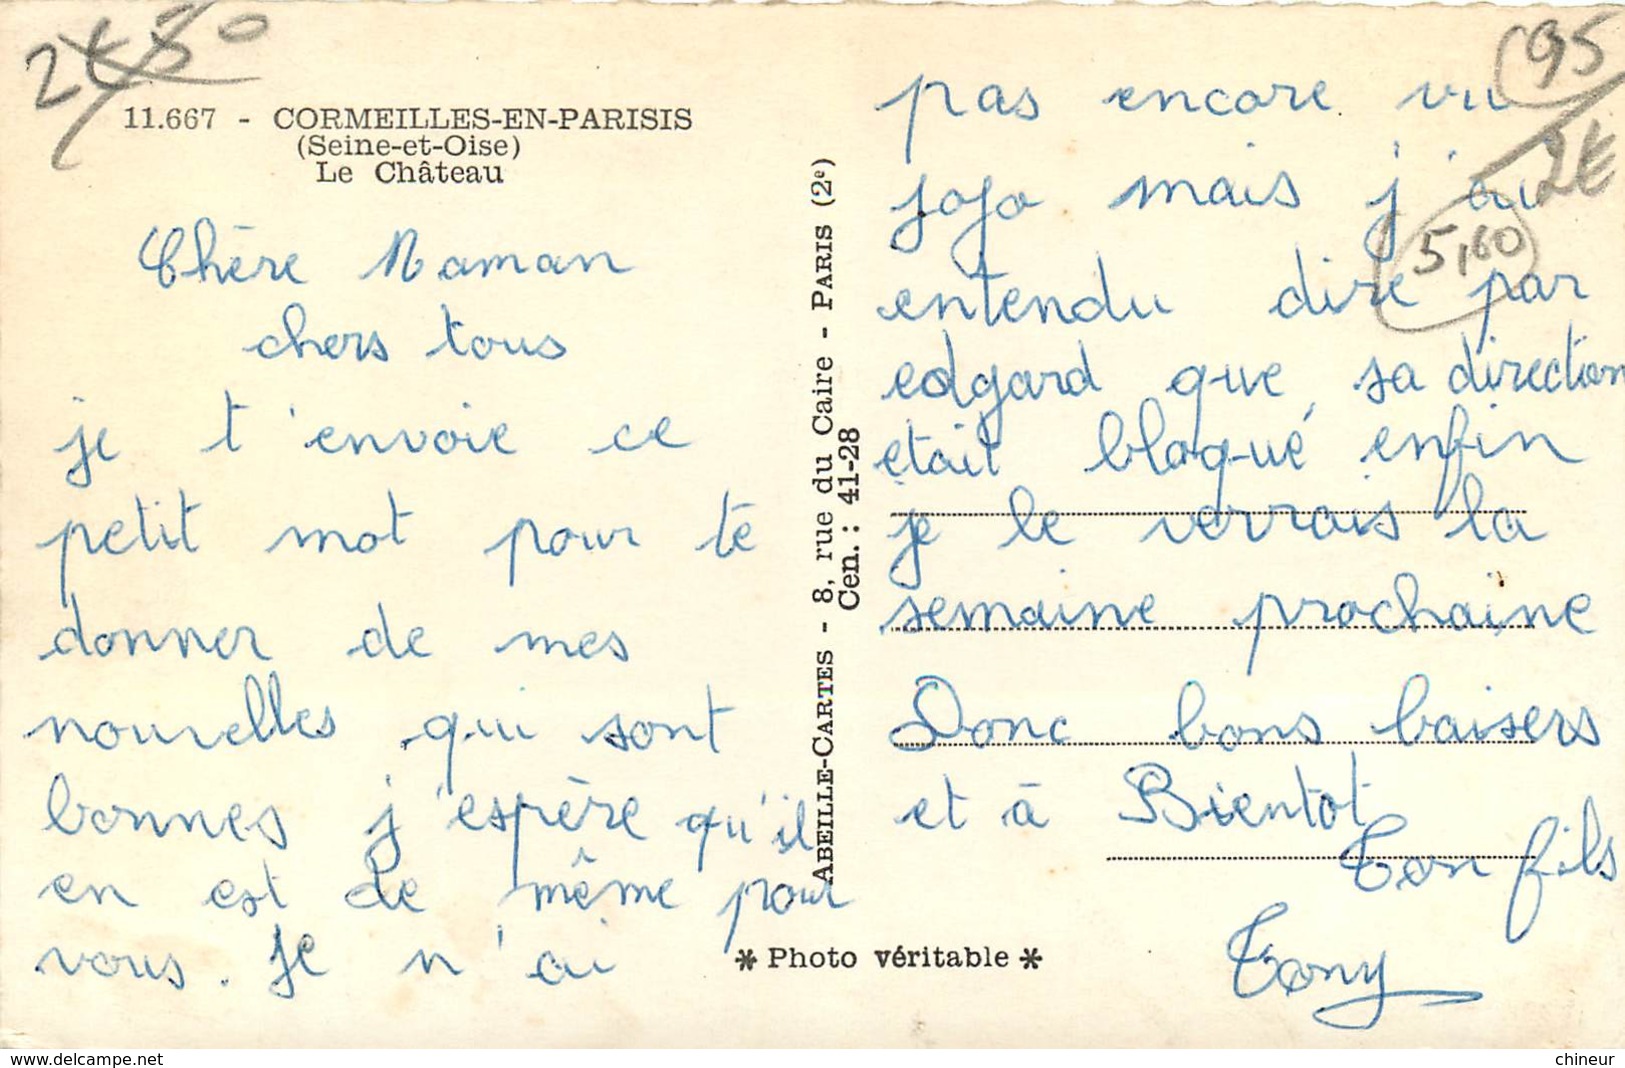 2€50
11.667 - CORMEILLES-EN-PARISIS
(Seine-et-Oise)
Le Château
Chère Maman
chers tous
je t'envoie ce
petit mot pour te
donner de mes
nouvelles qui sont
bonnes j'espère qu'il
en est de même pour
vous. Je n'ai
ABEILLE-CARTES - 8, rue du Caire - PARIS (2e)
Cen. : 41-28
* Photo véritable *
95
2€
5,60
pas encore vu
jojo mais j'ai
entendu dire par
edgard que sa direction
était bloqué enfin
je le verrais la
semaine prochaine
Donc bons baisers
et à Bientot
Ton fils
Tony
www.delcampe.net
chineur